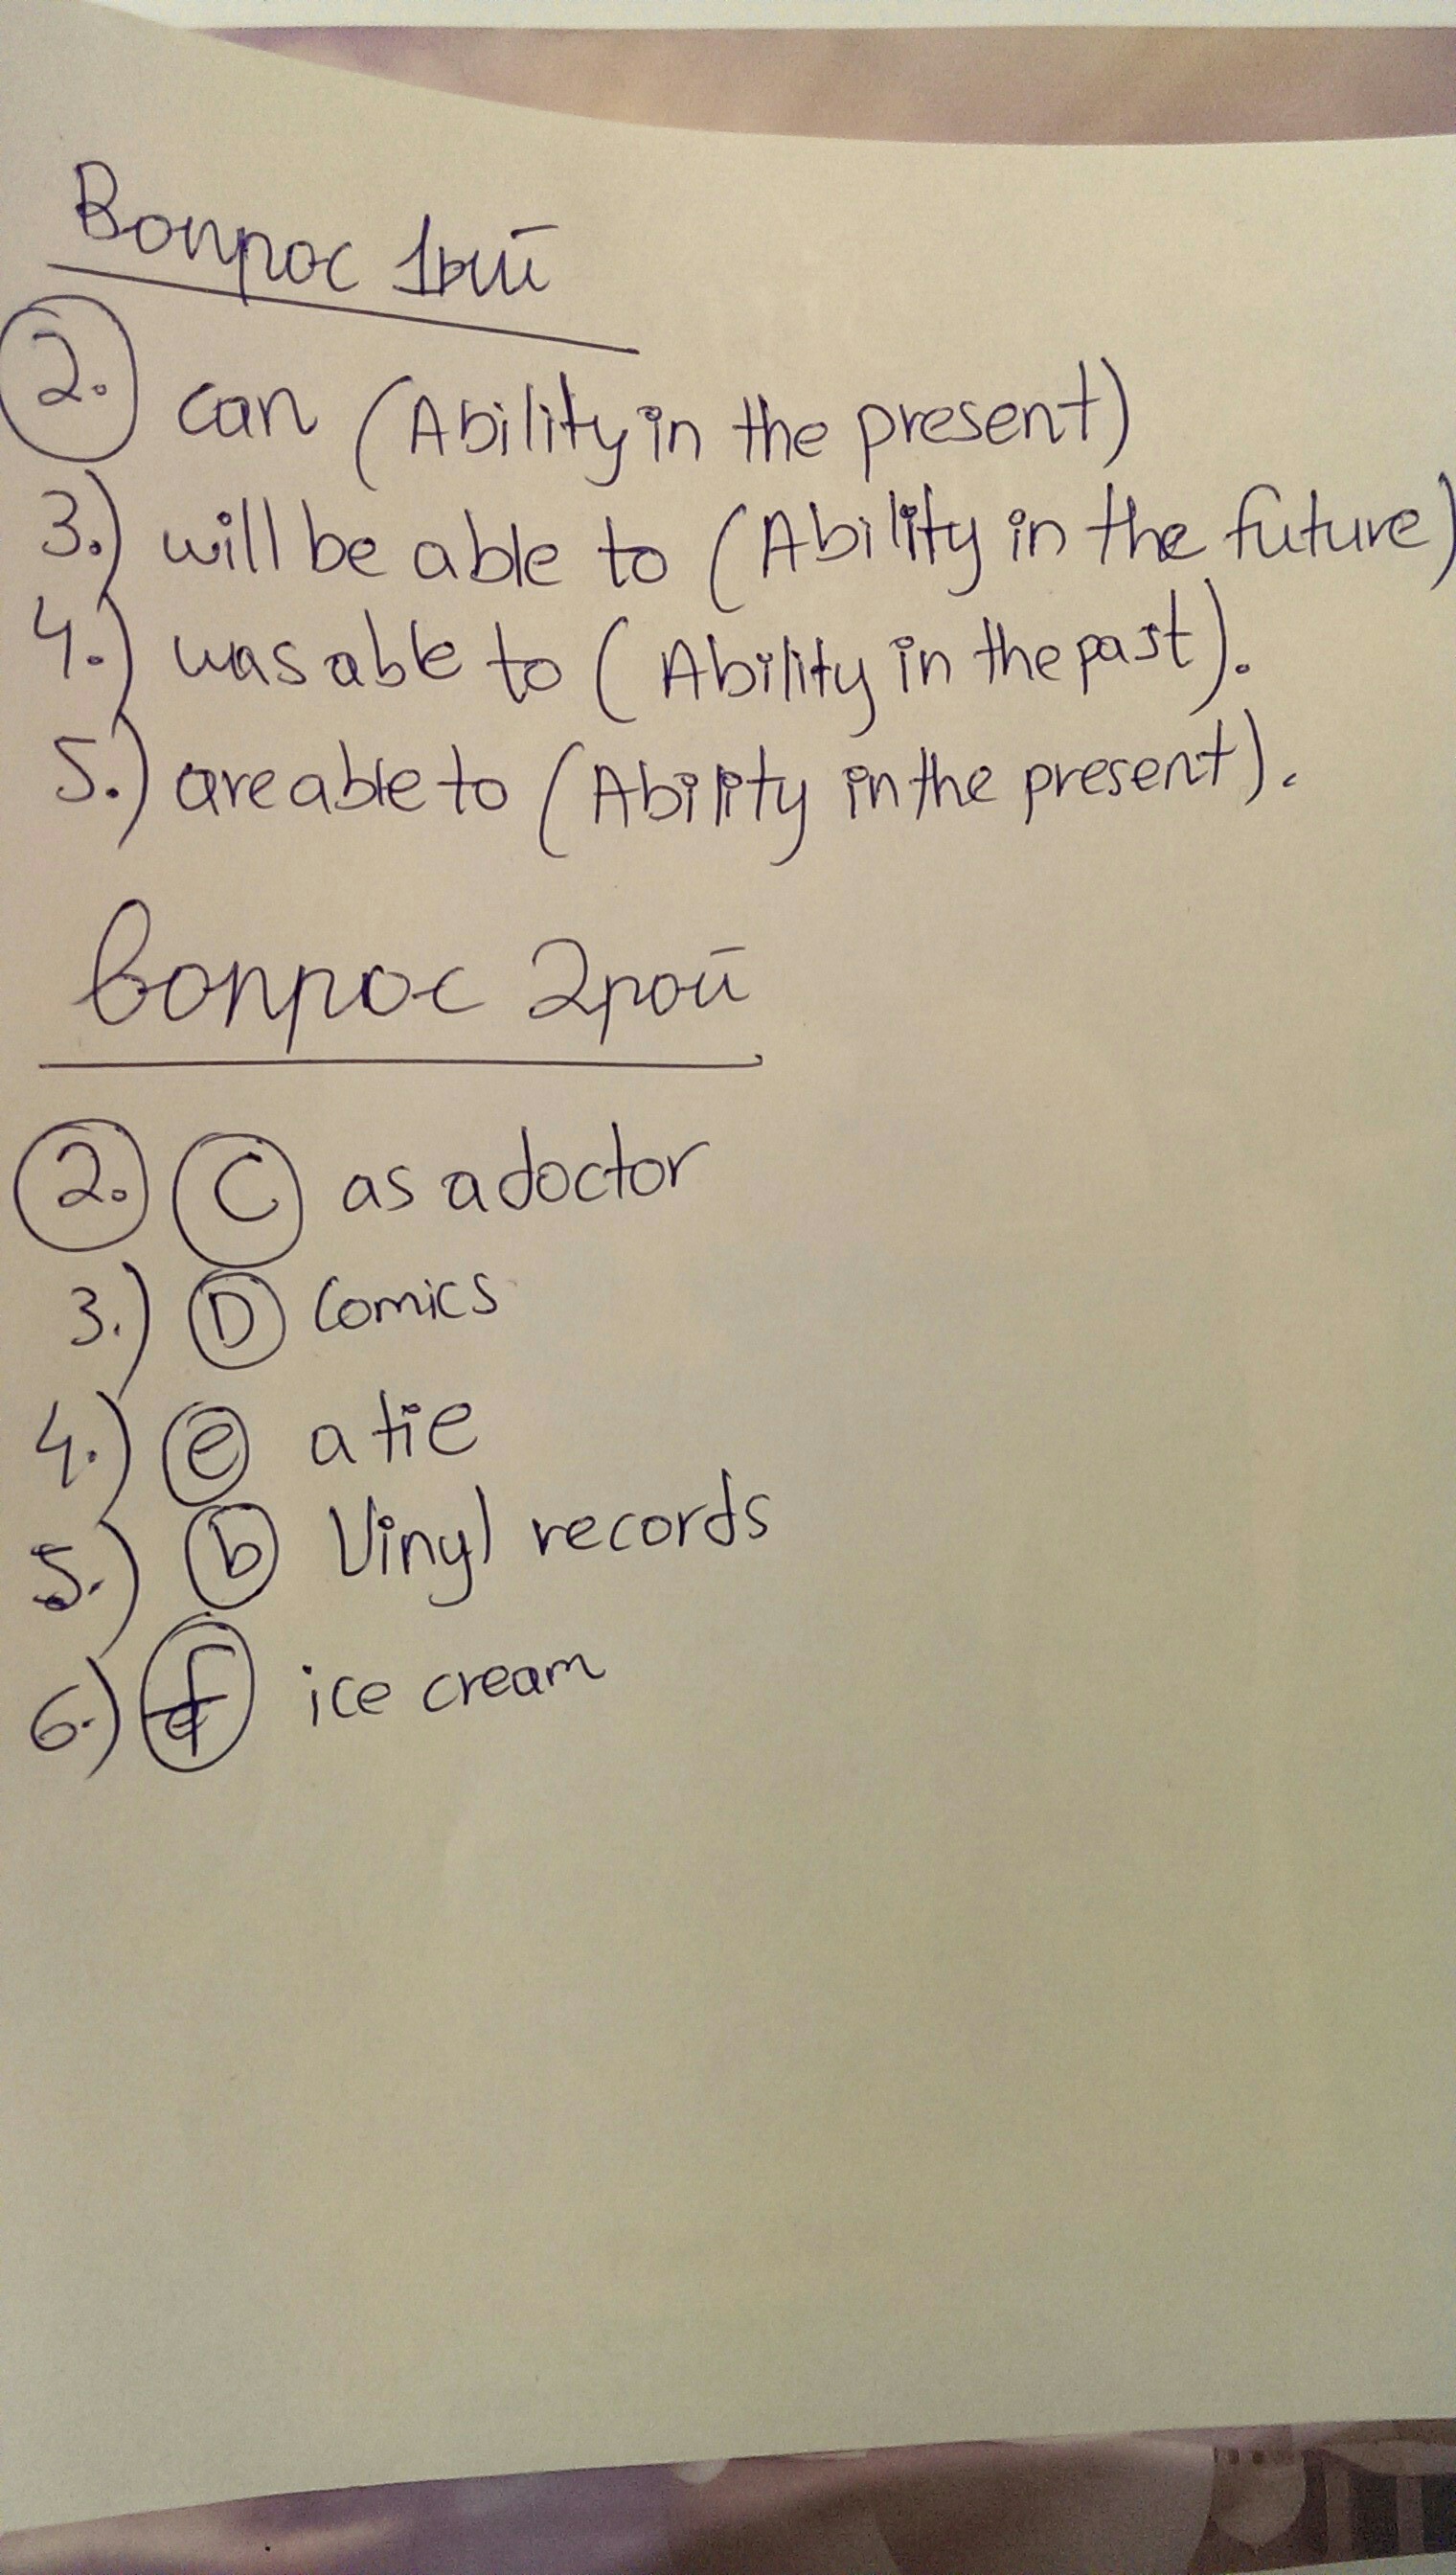 Вопрос 1вый
2. can (Ability in the present)
3.) will be able to (Ability in the future)
4.) was able to (Ability in the past).
5.) are able to (Ability in the present).
Вопрос 2рой
2. C as a doctor
3.) D comics
4.) e a tie
5.) b Vinyl records
6.) f ice cream